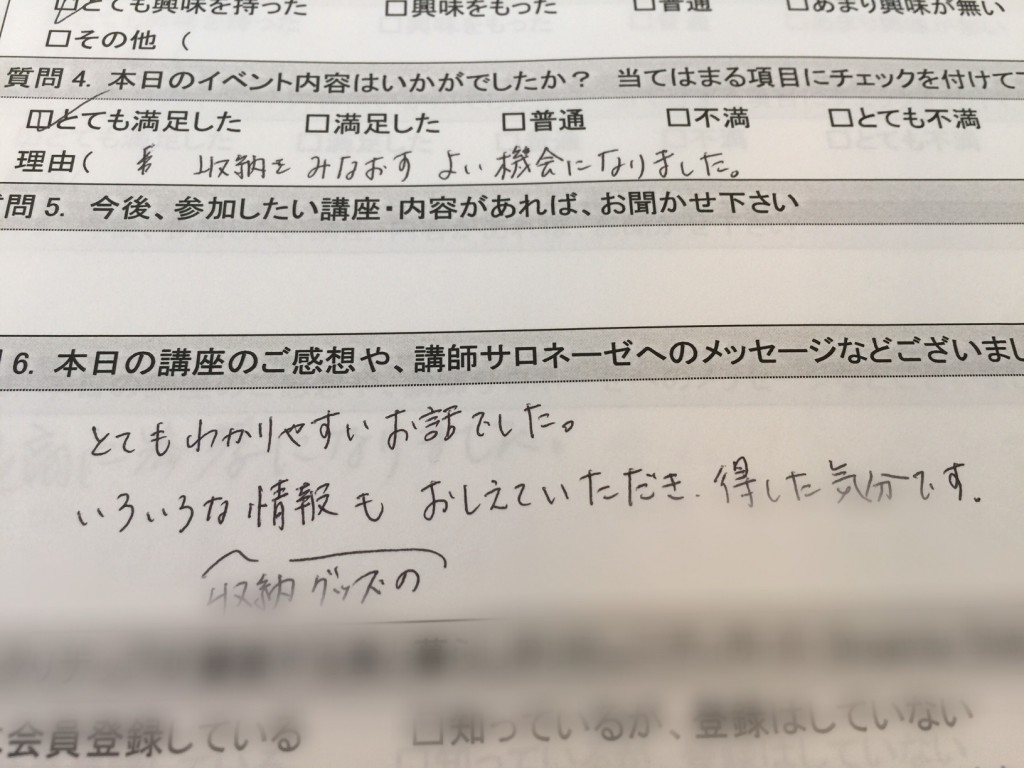 とても興味を持った □興味をもった □普通 □あまり興味が無い
□その他 (
質問 4. 本日のイベント内容はいかがでしたか? 当てはまる項目にチェックを付けて下
☑とても満足した □満足した □普通 □不満 □とても不満
理由( 収納を みなおす よい機会になりました。
問 5. 今後、参加したい講座・内容があれば、お聞かせ下さい
6. 本日の講座のご感想や、講師サロネーゼへのメッセージなどございまし
とてもわかりやすい お話でした。
いろいろな情報も おしえていただき、得した気分です。
収納グッズの
会員登録している □知っているが、登録はしていない